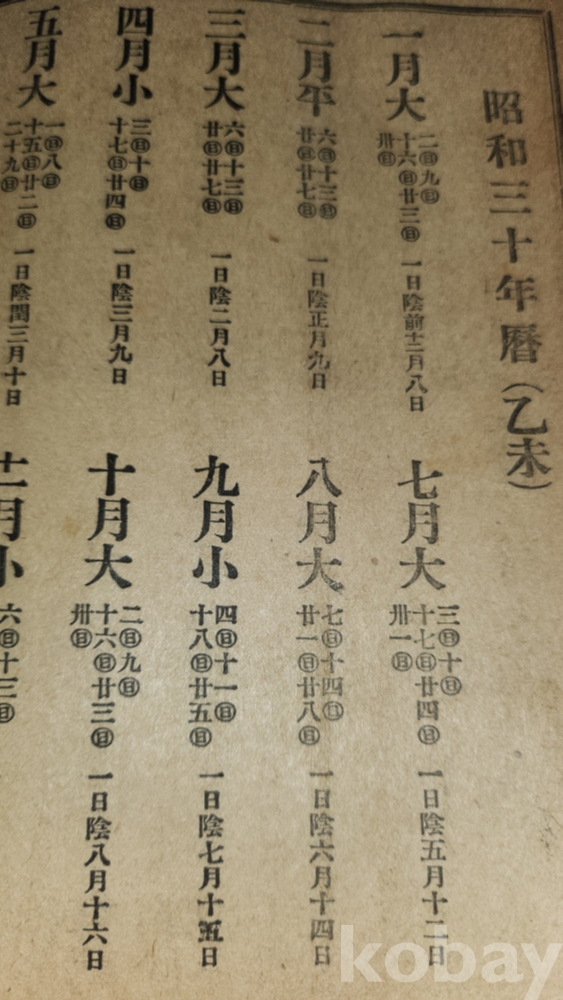 昭和三十年曆(乙未)
一月大
二㊐九㊐
十六㊐廿三㊐
卅㊐
一日陰前十二月八日
二月平
六㊐十三㊐
廿㊐廿七㊐
一日陰正月九日
三月大
六㊐十三㊐
廿㊐廿七㊐
一日陰二月八日
四月小
三㊐十㊐
十七㊐廿四㊐
一日陰三月九日
五月大
一㊐八㊐
十五㊐廿二㊐
二十九㊐
一日陰閏三月十日
七月大
三㊐十㊐
十七㊐廿四㊐
卅一㊐
一日陰五月十二日
八月大
七㊐十四㊐
廿一㊐廿八㊐
一日陰六月十四日
九月小
四㊐十一㊐
十八㊐廿五㊐
一日陰七月十五日
十月大
二㊐九㊐
十六㊐廿三㊐
卅㊐
一日陰八月十六日
十一月小
六㊐十三㊐
kobay